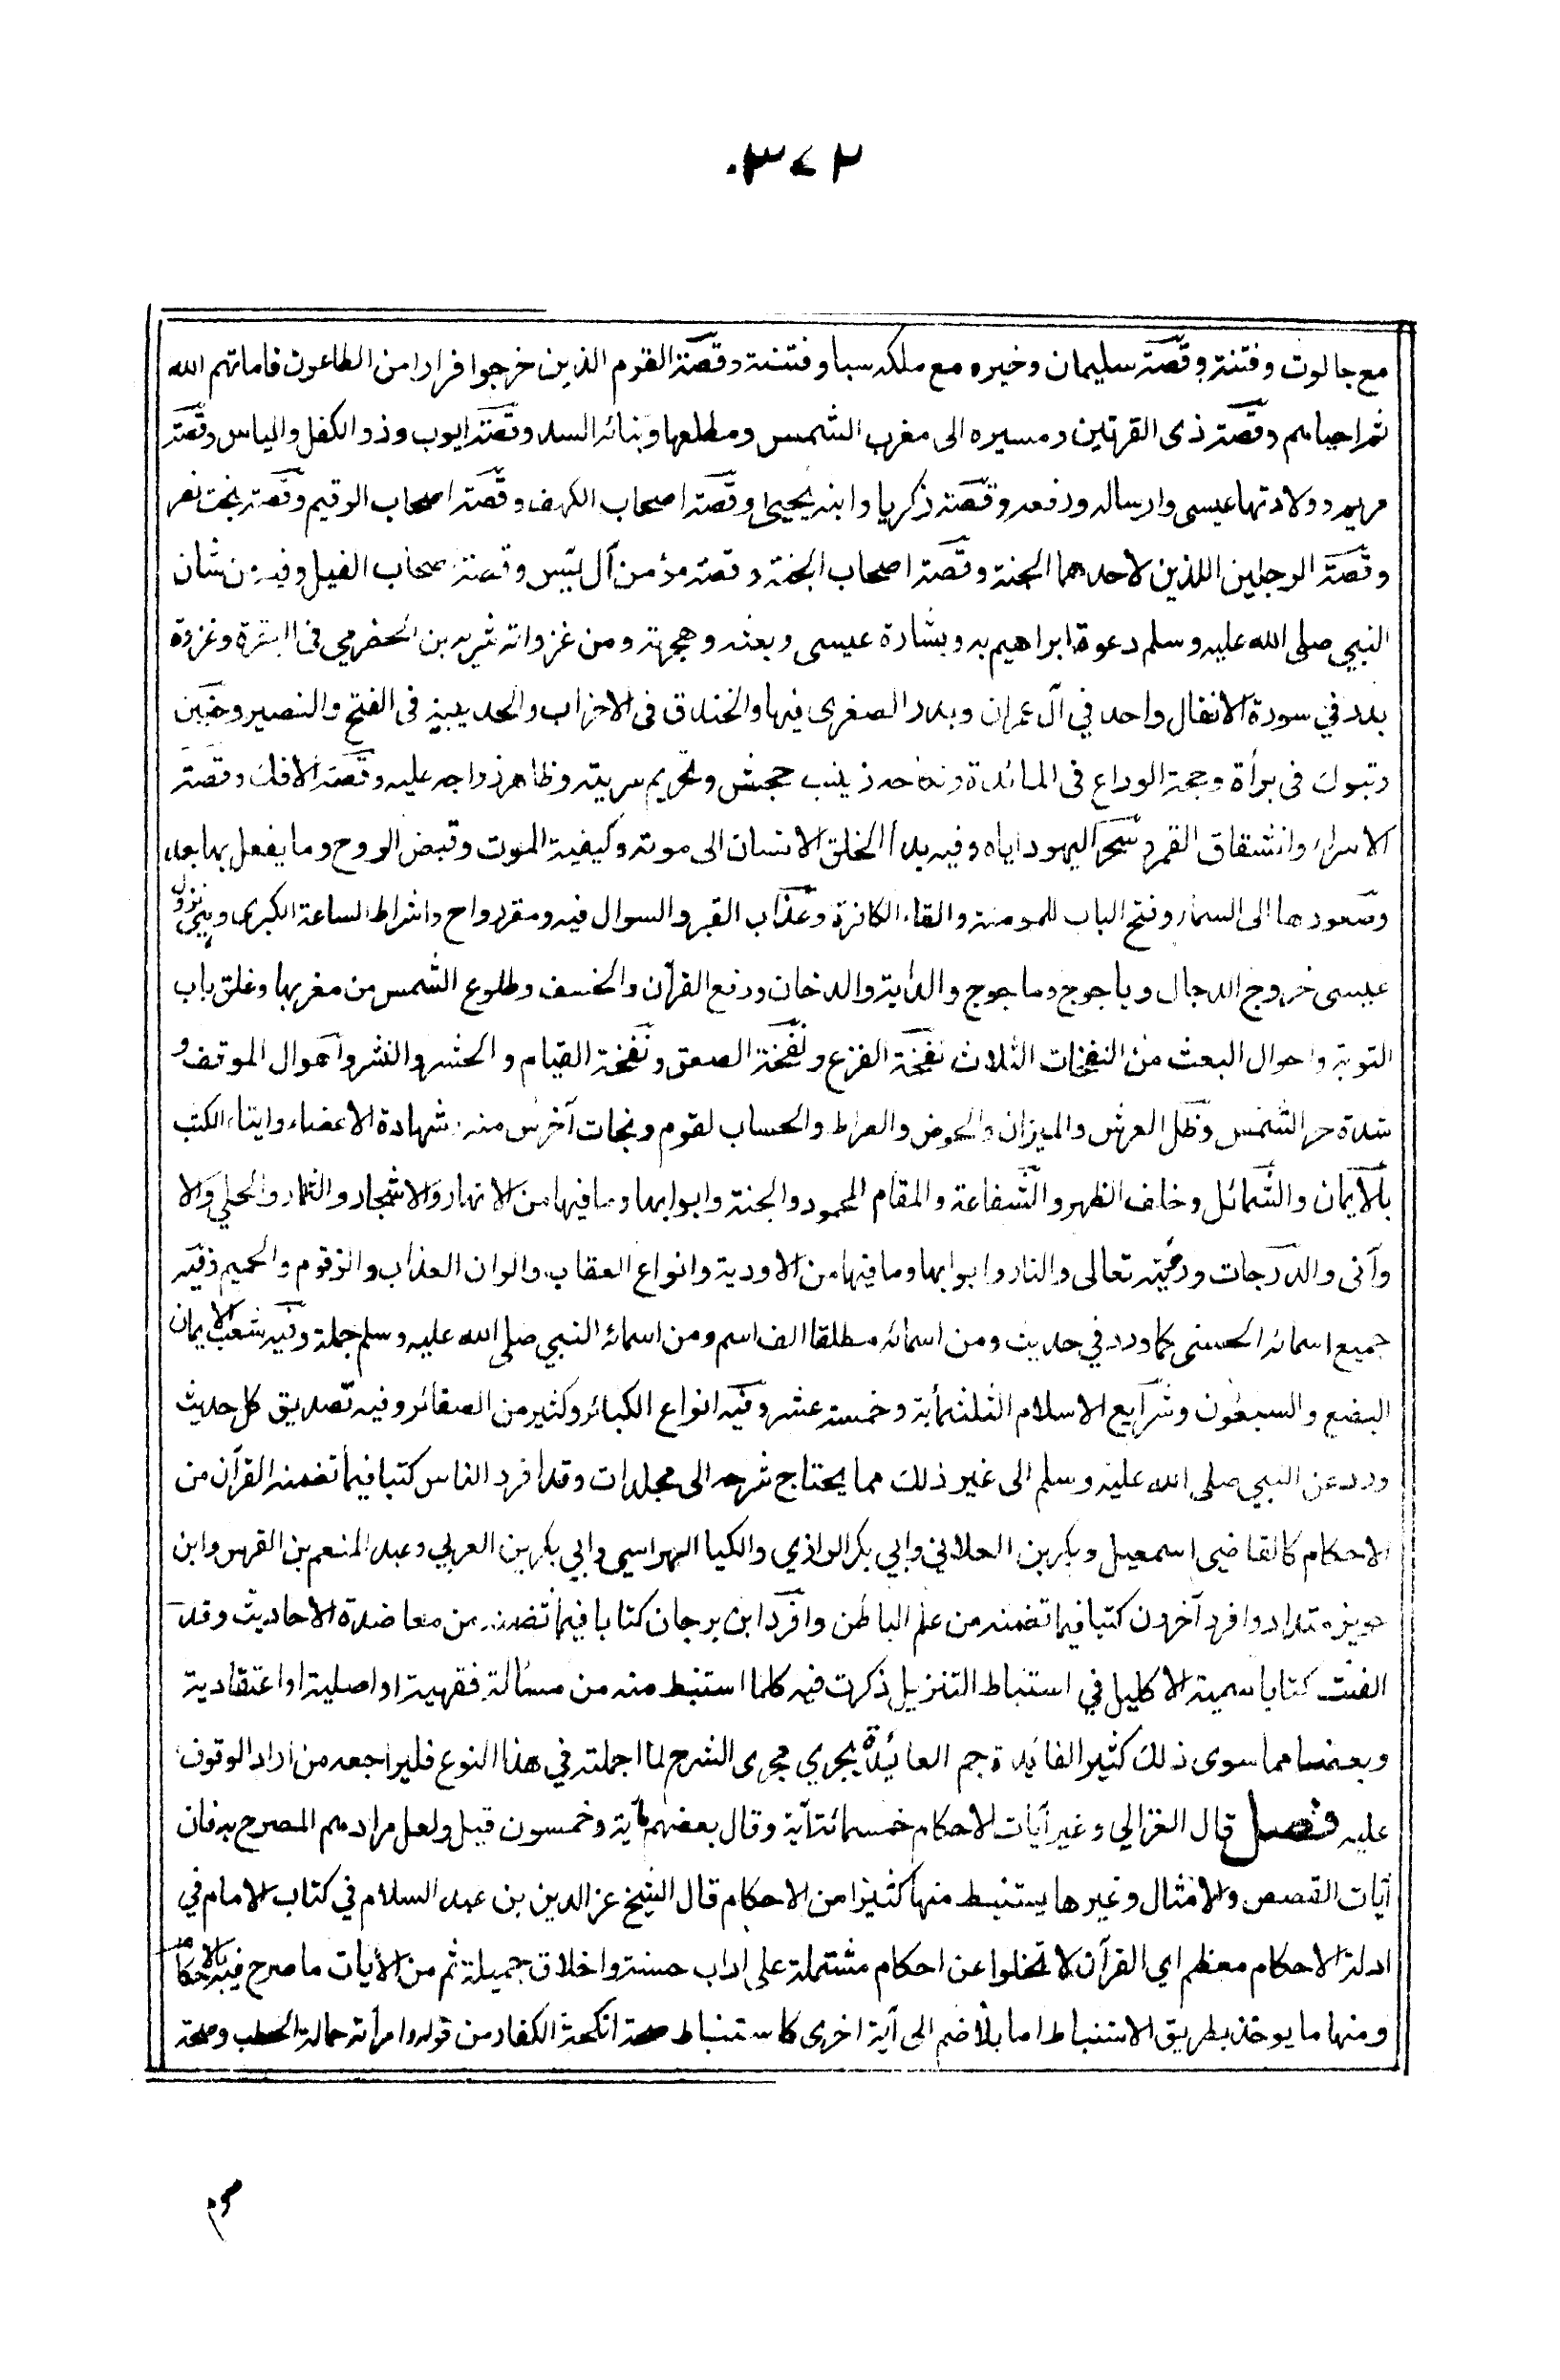 ٣٧٢
مع جالوت وفتنته وقصة سليمان وخبره مع ملكه سبا وفتنته وقصة القوم الذين خرجوا فرارا من الطاعون فاماتهم الله
ثم احياهم وقصة ذى القرنين ومسيره الى مغرب الشمس ومطلعها وبنائه السد وقصة ايوب وذو الكفل والياس وقصة
مريم وولادتها عيسى وارساله ورفعه وقصة زكريا وابنه يحيى وقصة اصحاب الكهف وقصة اصحاب الرقيم وقصة بخت نصر
وقصة الرجلين اللذين لاحدهما الجنة وقصة اصحاب الجنة وقصة مؤمن آل يٰسٓ وقصة اصحاب الفيل وفيه من شان
النبي صلى الله عليه وسلم دعوة ابراهيم به وبشارة عيسى وبعثه وهجرته ومن غزواته سرية بن الحضرمي فى البقرة وغزوة
بدر في سورة الانفال واحد في آل عمران وبدر الصغرى فيها والخندق فى الاحزاب والحديبية فى الفتح والنضير وحنين
وتبوك فى برأة وحجة الوداع فى المائدة ونكاحه زينب جحش وتحريم سريته وتظاهر ازواجه عليه وقصة الافك وقصة
الاسراء وانشقاق القمر وسحر اليهود اياه وفيه بدأ الخلق الانسان الى موته وكيفية الموت وقبض الروح وما يفعل بها بعد
وصعودها الى السماء وفتح الباب للمومنة والقاء الكافرة وعذاب القبر والسوال فيه ومقر رواح واشراط الساعة الكبرى وهي نزول
عيسى خروج الدجال وياجوج وماجوج والدابة والدخان ورفع القرآن والخسف وطلوع الشمس من مغربها وغلق باب
التوبة واحوال البعث من النفخات الثلاث نفخة الفزع ونفخة الصعق ونفخة القيام والحشر والنشر واهوال الموقف و
شدة حر الشمس وظل العرش والميزان والحوض والصراط والحساب لقوم ونجات آخرين منه وشهادة الاعضاء وايتاء الكتب
بالايمان والشمائل وخلف الظهر والشفاعة والمقام المحمود والجنة وابوابها وما فيها من الانهار والاشجار والثمار والحلي والا
وآنى والدرجات ورؤيته تعالى والنار وابوابها وما فيها من الاودية وانواع العقاب والوان العذاب والزقوم والحميم وفيه
جميع اسمائه الحسنى كما ورد في حديث ومن اسمائه مطلقا الف اسم ومن اسمائه النبي صلى الله عليه وسلم جملة وفيه شعب الايمان
البضع والسبعون وشرايع الاسلام الثلثمأية وخمسة عشر وفيه انواع الكبائر وكثير من الصغائر وفيه تصديق كل حديث
ورد عن النبي صلى الله عليه وسلم الى غير ذلك مما يحتاج شرحه الى مجلدات وقد افرد الناس كتبا فيما تضمنه القرآن من
الاحكام كالقاضى اسمعيل وبكر بن العلائي وابي بكر الرازي والكيا الهراسي وابي بكر بن العربي وعبد المنعم بن الفرس وابن
حويز متداد وافرد آخرون كتبا فيما تضمنه من علم الباطن وافرد ابن برجان كتابا فيما تضمنه من معاضدة الاحاديث وقد
الفت كتابا سميته الاكليل في استنباط التنزيل ذكرت فيه كلما استنبط منه من مسألة فقهية او اصلية او اعتقادية
وبعضا مما سوى ذلك كثير الفايدة جم العائدة يجري مجرى الشرح لما اجملته في هذا النوع فليراجعه من اراد الوقوف
عليه فصل قال الغزالي وغير آيات الاحكام خمسمائة آية وقال بعضهم مأية وخمسون قيل ولعل مرادهم المصرح به فان
آيات القصص والامثال وغيرها يستنبط منها كثيرا من الاحكام قال الشيخ عز الدين بن عبد السلام في كتاب الامام في
ادلة الاحكام معظم اي القرآن لا تخلوا عن احكام مشتملة على اداب حسنة واخلاق جميلة ثم من الأيات ما صرح فيه بالاحكام
ومنها ما يوخذ بطريق الاستنباط اما بلا ضم الى آية اخرى كاستنباط صحة انكحة الكفار من قوله وامرأته حمالة الحطب وصحة